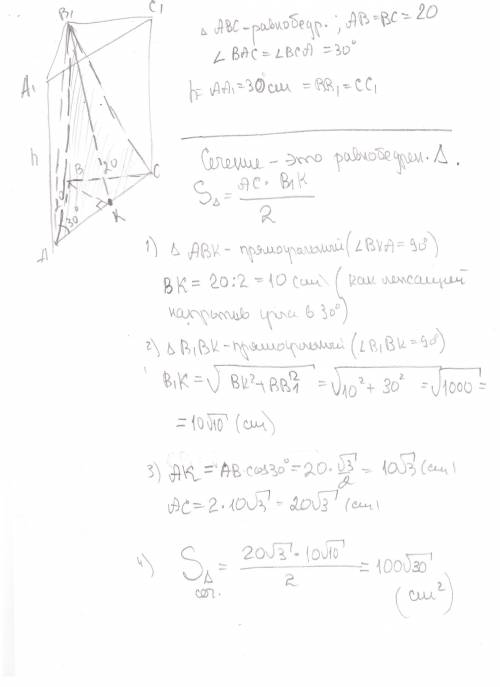 B₁
C₁
Δ ABC - равнобедр. ; AB = BC = 20
∠ BAC = ∠BCA = 30°
A₁
h = AA₁ = 30 cm = BB₁ = CC₁
h
Сечение - это равнобедрен. Δ.
S_Δ = AC · B₁K / 2
B
20
C
20
30°
K
A
1) Δ ABK - прямоугольный (∠BKA = 90°)
BK = 20 : 2 = 10 (cm) (как лежащий
напротив угла в 30°)
2) Δ B₁BK - прямоугольный (∠B₁BK = 90°)
B₁K = √(BK² + BB₁²) = √(10² + 30²) = √1000 =
= 10√10 (cm)
3) AK = AB · cos30° = 20 · √3/2 = 10√3 (cm)
AC = 2 · 10√3 = 20√3 (cm)
4) S_Δ сеч. = 20√3 · 10√10 / 2 = 100√30
(cm²)